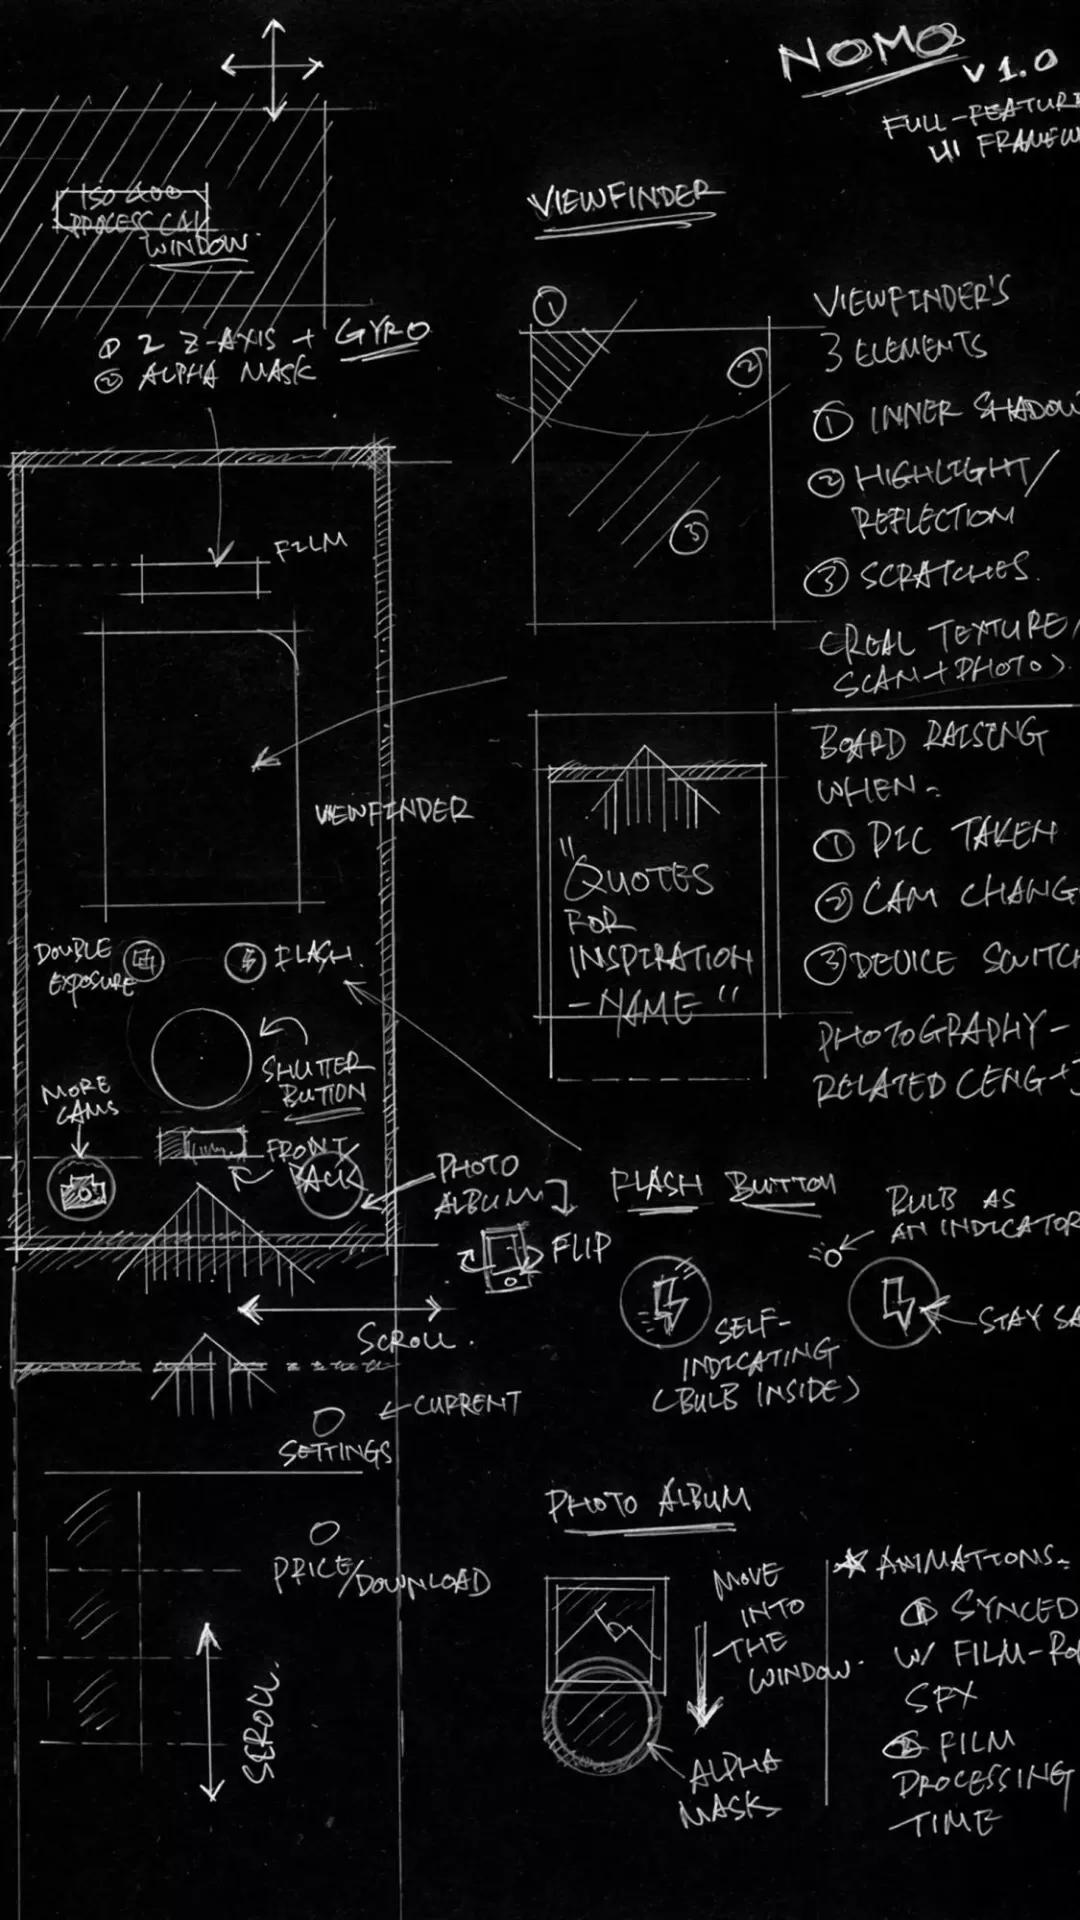 NOMO
V 1.0
FULL-FEATURE
UI FRAMEW
ISO 400
PROCESS
WINDOW.
① 2 Z-AXIS + GYRO
② ALPHA MASK
FILM
VIEWFINDER
DOUBLE
EXPOSURE
FLASH.
SHUTTER
BUTTON
MORE
CAMS
FRONT/
BACK
PHOTO
ALBUM
FLIP
SCROLL.
CURRENT
SETTINGS
PRICE/DOWNLOAD
SCROLL.
VIEWFINDER
①
②
③
VIEWFINDER'S
3 ELEMENTS
① INNER SHADOW
② HIGHLIGHT/
REFLECTION
③ SCRATCHES.
(REAL TEXTURE/
SCAN+PHOTO).
"QUOTES
FOR
INSPIRATION
-NAME"
BOARD RAISING
WHEN-
① PIC TAKEN
② CAM CHANG
③ DEVICE SWITCH
PHOTOGRAPHY-
RELATED (ENG+
FLASH BUTTON
SELF-
INDICATING
(BULB INSIDE)
BULB AS
AN INDICATOR
STAY SA
PHOTO ALBUM
MOVE
INTO
THE
WINDOW.
ALPHA
MASK
★ ANIMATIONS-
① SYNCED
W/ FILM-RO
SFX
② FILM
PROCESSING
TIME